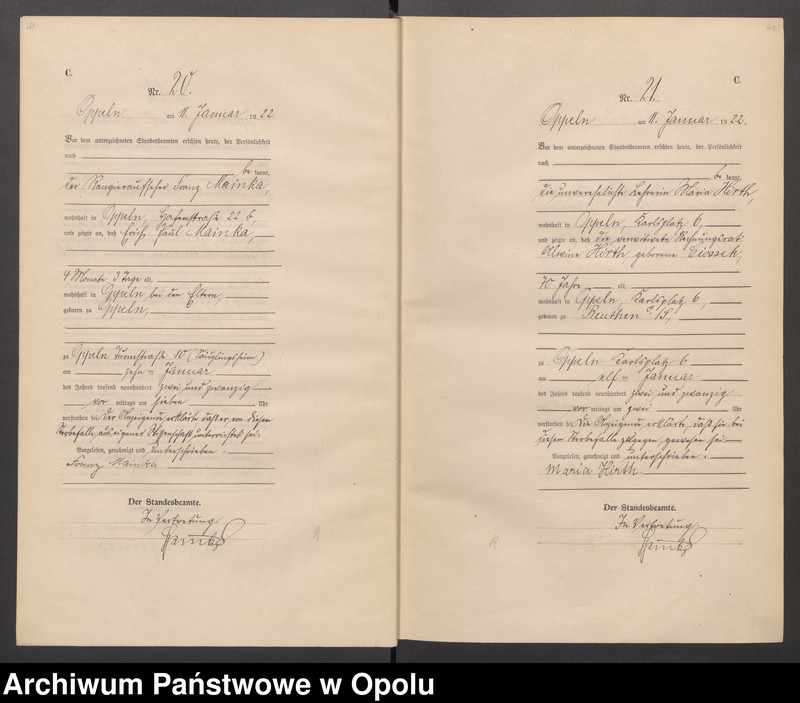 C.
Nr. 20.
Oppeln am 11. Januar 1922
Vor dem unterzeichneten Standesbeamten erschien heute, der Persönlichkeit
nach
be kannt,
der Rangieraufseher Franz Mainka,
wohnhaft in Oppeln, Hafenstraße 22 b,
und zeigte an, daß Erich Paul Mainka,
4 Monate 3 Tage alt,
wohnhaft in Oppeln bei den Eltern,
geboren zu Oppeln,
zu Oppeln Turmstraße 10 (Säuglingsheim)
am zehn ten Januar
des Jahres tausend neunhundert zwei und zwanzig
vor mittags um sieben Uhr
verstorben sei. Der Anzeigende erklärte, daß er von diesem
Sterbefalle aus eigener Wissenschaft unterrichtet sei.
Vorgelesen, genehmigt und unterschrieben.
Franz Mainka
Der Standesbeamte.
In Vertretung
C.
Nr. 21.
Oppeln am 11. Januar 1922.
Vor dem unterzeichneten Standesbeamten erschien heute, der Persönlichkeit
nach
be kannt,
die unverehelichte Lehrerin Maria Hirth,
wohnhaft in Oppeln, Karlsplatz 6,
und zeigte an, daß die verwitwete Rechnungsrat
Alwine Hirth geborene
70 Jahre alt,
wohnhaft in Oppeln, Karlsplatz 6,
geboren zu Beuthen O/S,
zu Oppeln Karlsplatz 6
am elf ten Januar
des Jahres tausend neunhundert zwei und zwanzig
vor mittags um zwei Uhr
verstorben sei. Die Anzeigende erklärte, daß sie bei
diesem Sterbefalle zugegen gewesen sei.
Vorgelesen, genehmigt und unterschrieben.
Maria Hirth
Der Standesbeamte.
In Vertretung
Archiwum Państwowe w Opolu